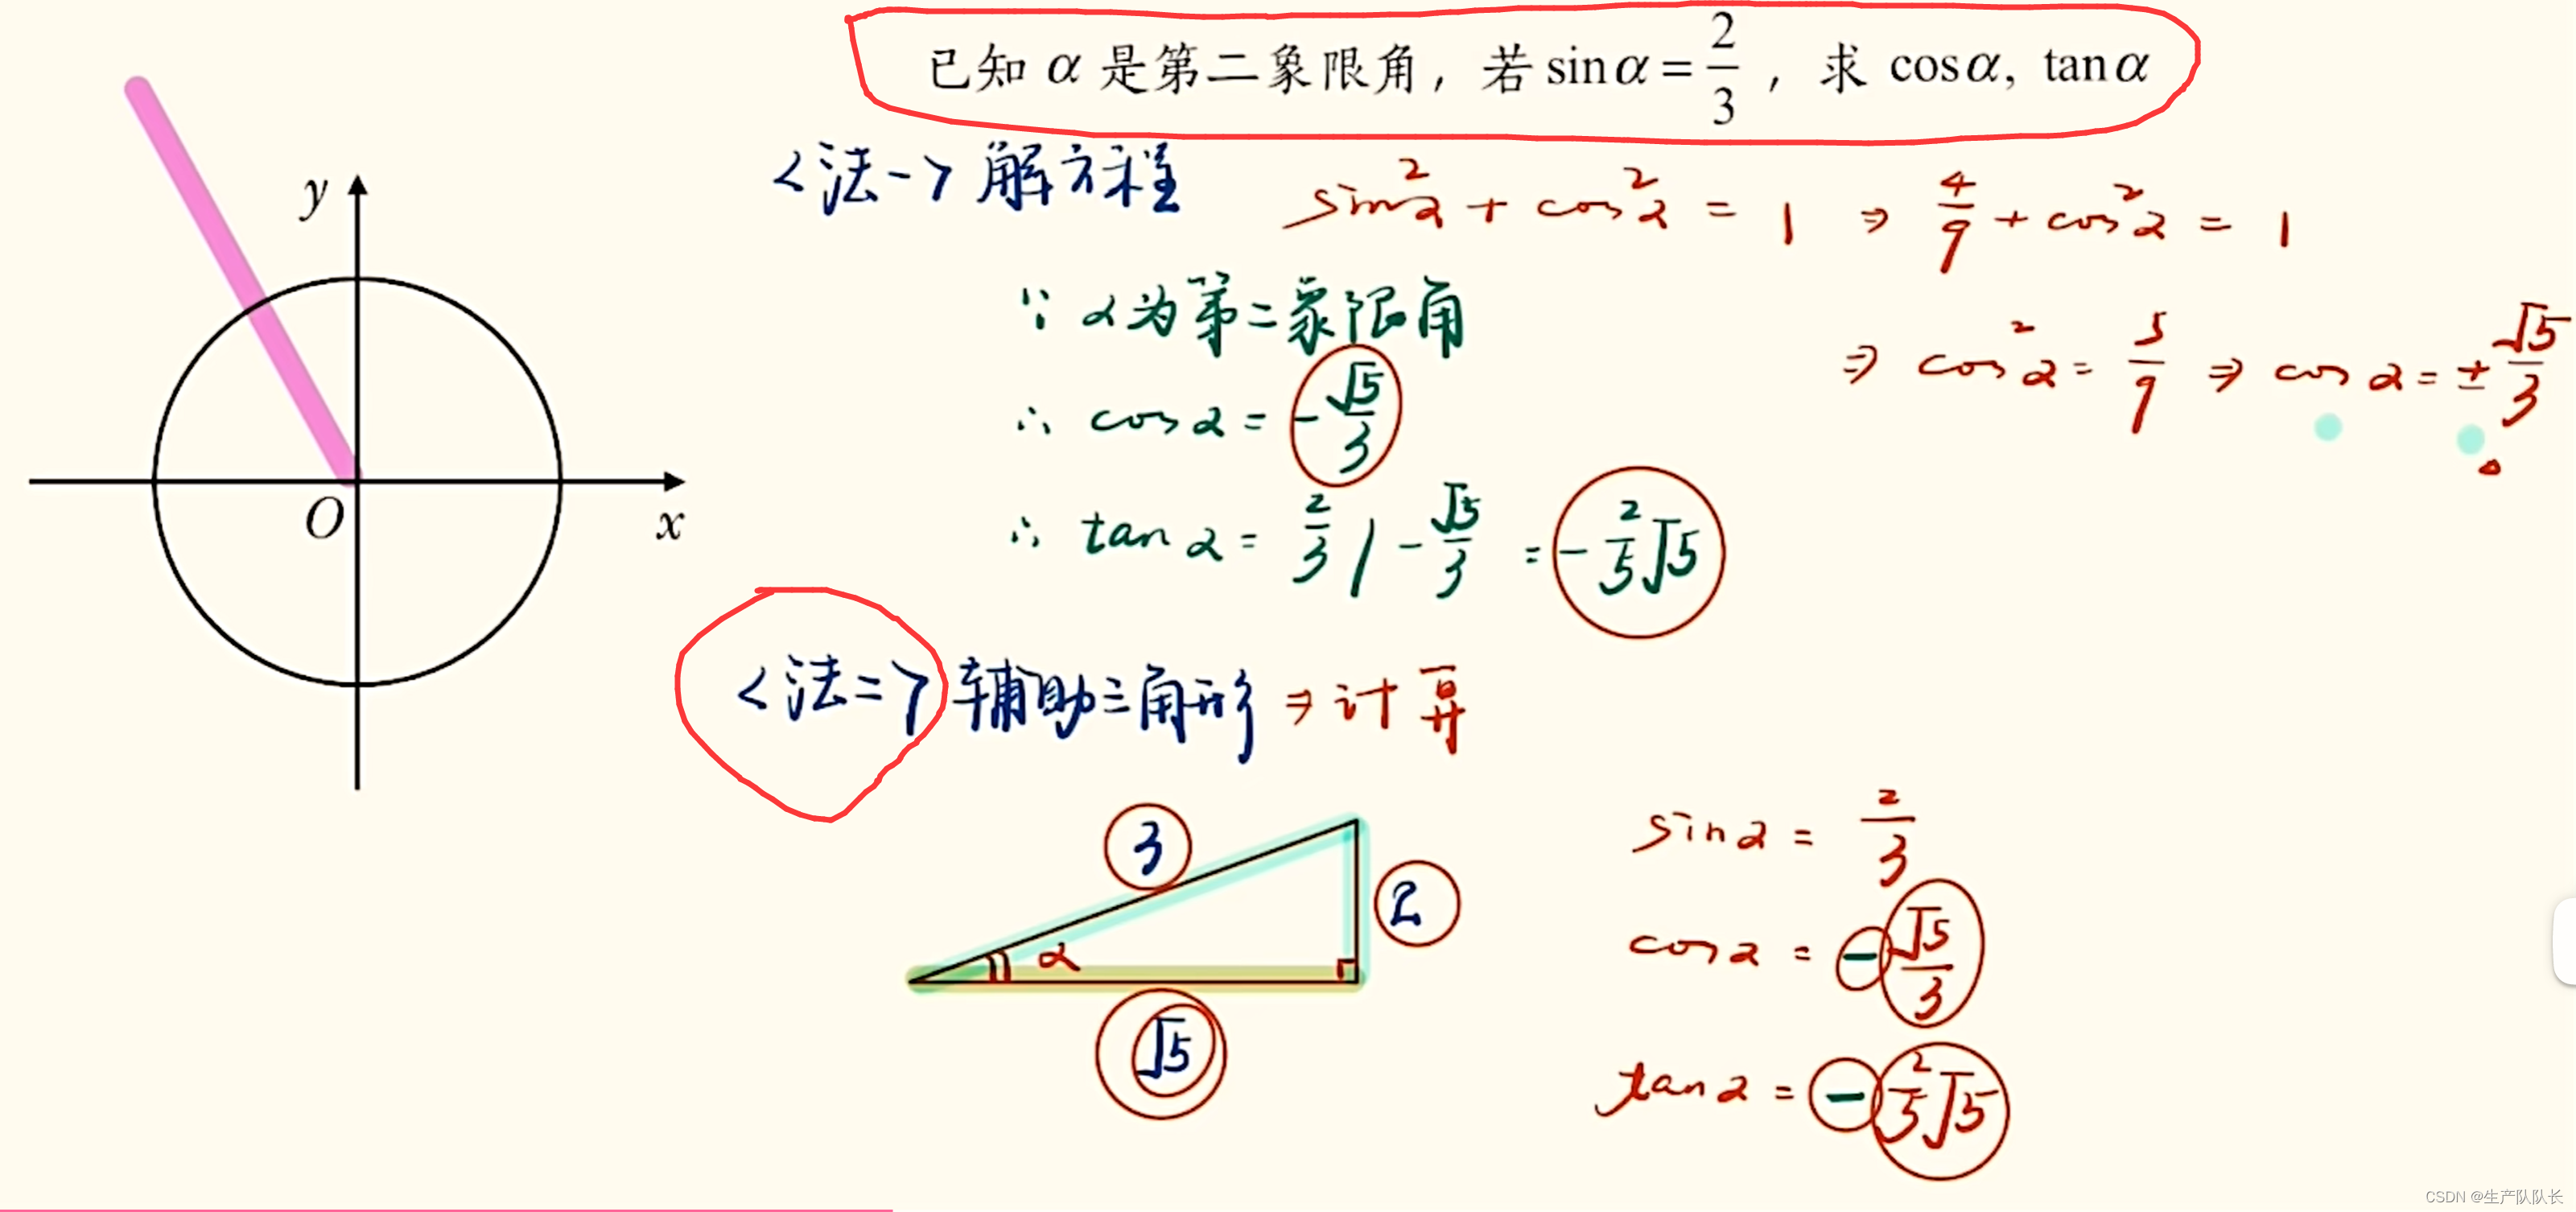 已知 α 是第二象限角，若 sinα = 2/3 ，求 cosα, tanα
<法一> 解方程
sin²α + cos²α = 1 ⇒ 4/9 + cos²α = 1
⇒ cos²α = 5/9 ⇒ cosα = ±√5/3
∵ α为第二象限角
∴ cosα = -√5/3
∴ tanα = 2/3 / -√5/3 = -2/5√5
y
O
x
<法二> 辅助三角形 ⇒ 计算
3
2
α
√5
sinα = 2/3
cosα = -√5/3
tanα = -2/5√5
CSDN @生产队队长